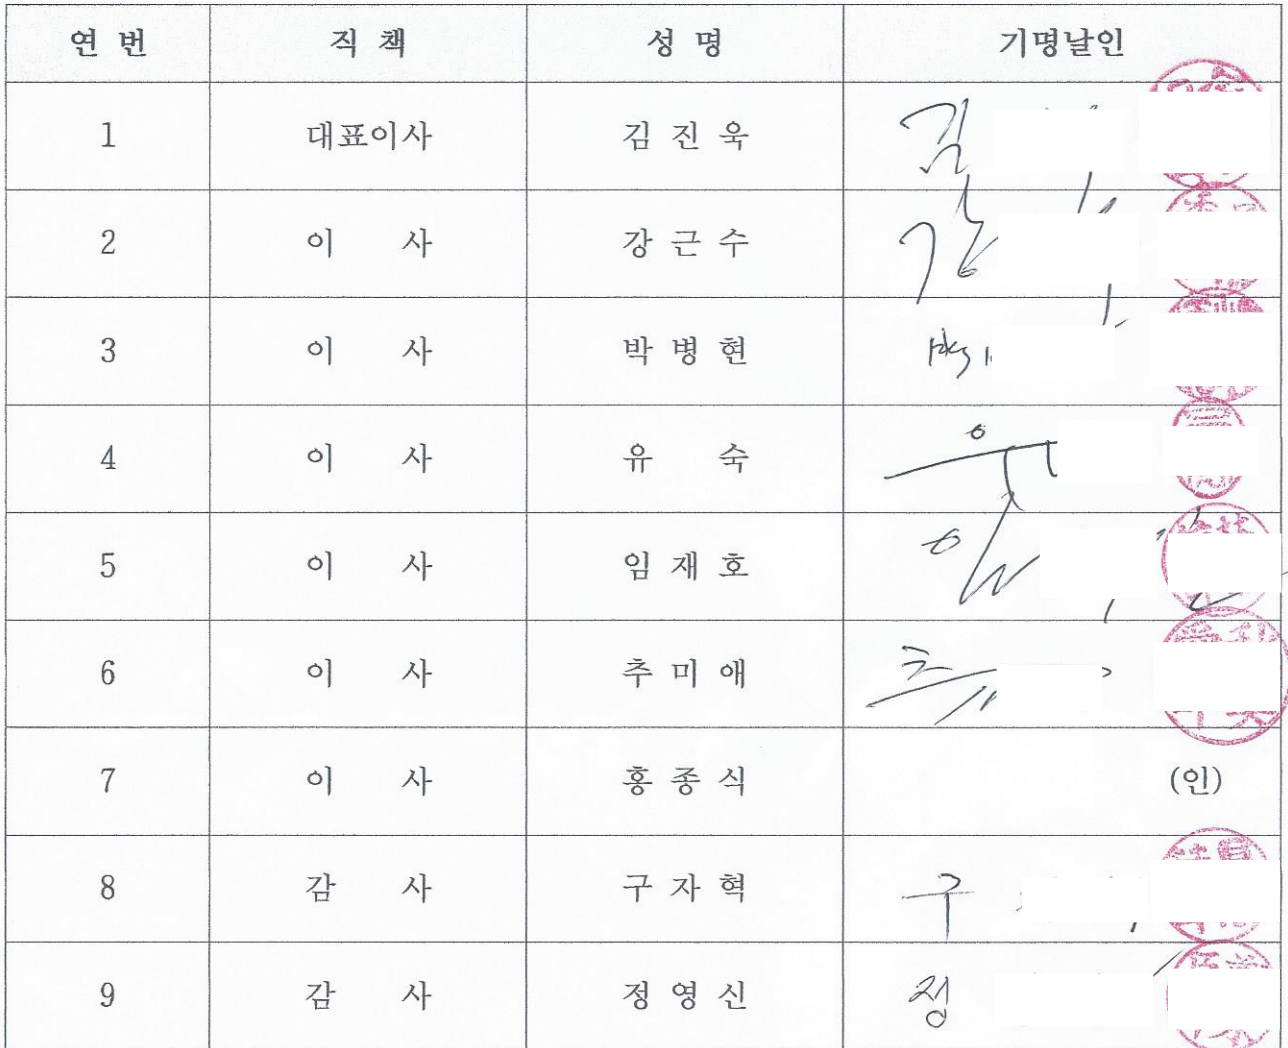 연 번 직 책 성 명 기명날인
1 대표이사 김 진 욱 김
2 이 사 강 근 수 강
3 이 사 박 병 현 박병
4 이 사 유 숙 유
5 이 사 임 재 호 임
6 이 사 추 미 애 추
7 이 사 홍 종 식 (인)
8 감 사 구 자 혁 구
9 감 사 정 영 신 정